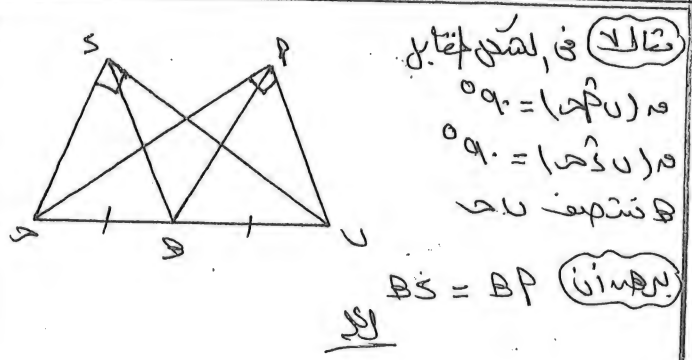 مثال٢ في الشكل المقابل
ق(ب أ ج) = ٩٠°
ق(ب د ج) = ٩٠°
هـ منتصف ب ج
برهن أن أ هـ = د هـ
الحل
د
أ
ج
هـ
ب